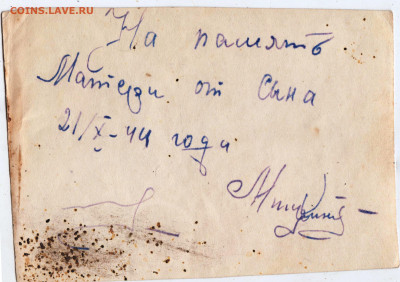 COINS.LAVE.RU
На память
Матери от Сына
21/X-44 годи